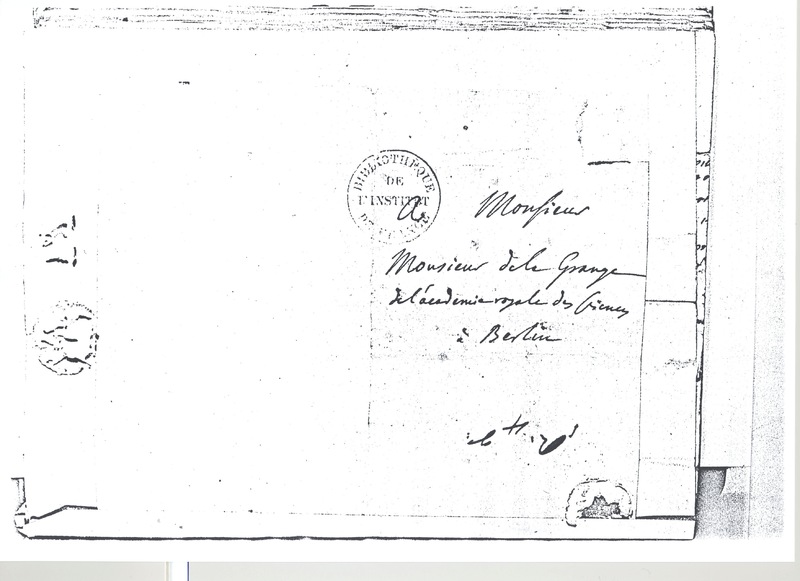 BIBLIOTHÈQUE
DE
L'INSTITUT
DE FRANCE
A Monsieur
Monsieur de la Grange
de l'academie royale des Sciences
à Berlin